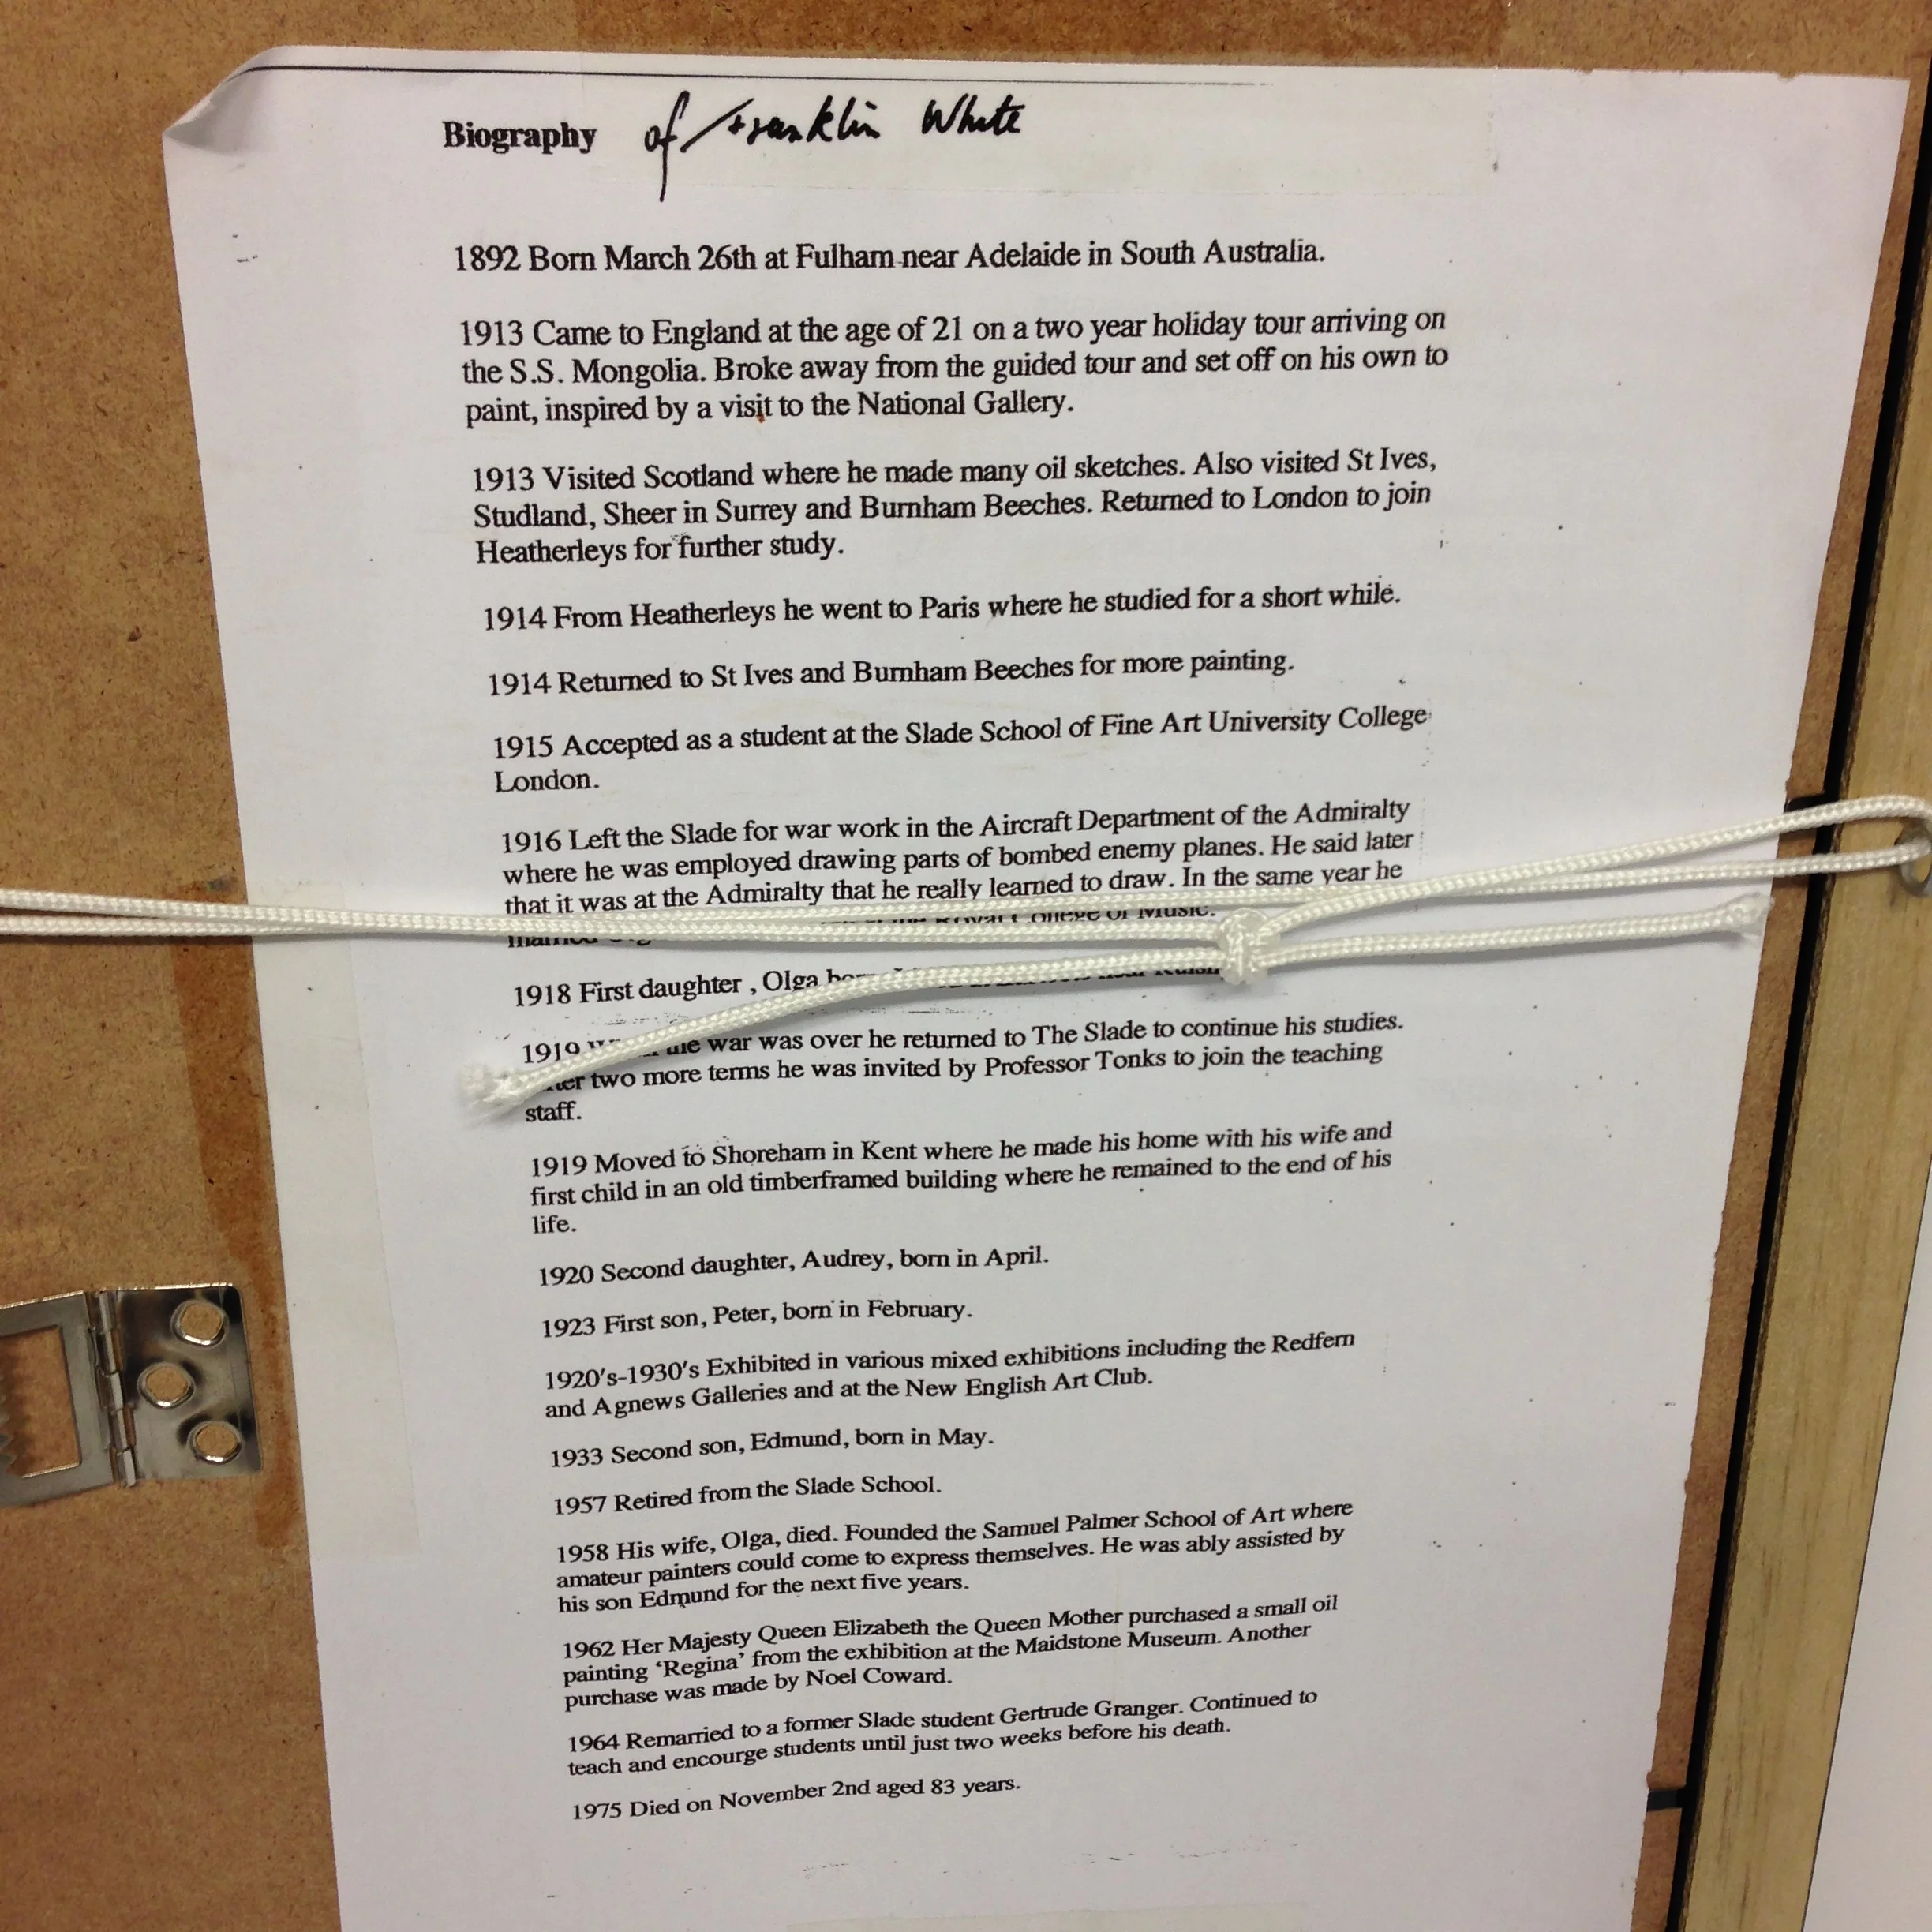 Biography of Franklin White
1892 Born March 26th at Fulham near Adelaide in South Australia.
1913 Came to England at the age of 21 on a two year holiday tour arriving on
the S.S. Mongolia. Broke away from the guided tour and set off on his own to
paint, inspired by a visit to the National Gallery.
1913 Visited Scotland where he made many oil sketches. Also visited St Ives,
Studland, Sheer in Surrey and Burnham Beeches. Returned to London to join
Heatherleys for further study.
1914 From Heatherleys he went to Paris where he studied for a short while.
1914 Returned to St Ives and Burnham Beeches for more painting.
1915 Accepted as a student at the Slade School of Fine Art University College
London.
1916 Left the Slade for war work in the Aircraft Department of the Admiralty
where he was employed drawing parts of bombed enemy planes. He said later
that it was at the Admiralty that he really learned to draw. In the same year he
married Royal College of Music.
1918 First daughter , Olga
1919 the war was over he returned to The Slade to continue his studies.
two more terms he was invited by Professor Tonks to join the teaching
staff.
1919 Moved to Shoreham in Kent where he made his home with his wife and
first child in an old timberframed building where he remained to the end of his
life.
1920 Second daughter, Audrey, born in April.
1923 First son, Peter, born in February.
1920's-1930's Exhibited in various mixed exhibitions including the Redfern
and Agnews Galleries and at the New English Art Club.
1933 Second son, Edmund, born in May.
1957 Retired from the Slade School.
1958 His wife, Olga, died. Founded the Samuel Palmer School of Art where
amateur painters could come to express themselves. He was ably assisted by
his son Edmund for the next five years.
1962 Her Majesty Queen Elizabeth the Queen Mother purchased a small oil
painting ‘Regina’ from the exhibition at the Maidstone Museum. Another
purchase was made by Noel Coward.
1964 Remarried to a former Slade student Gertrude Granger. Continued to
teach and encourge students until just two weeks before his death.
1975 Died on November 2nd aged 83 years.